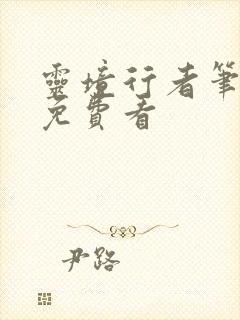 靈境行者筆
免費看
尹路